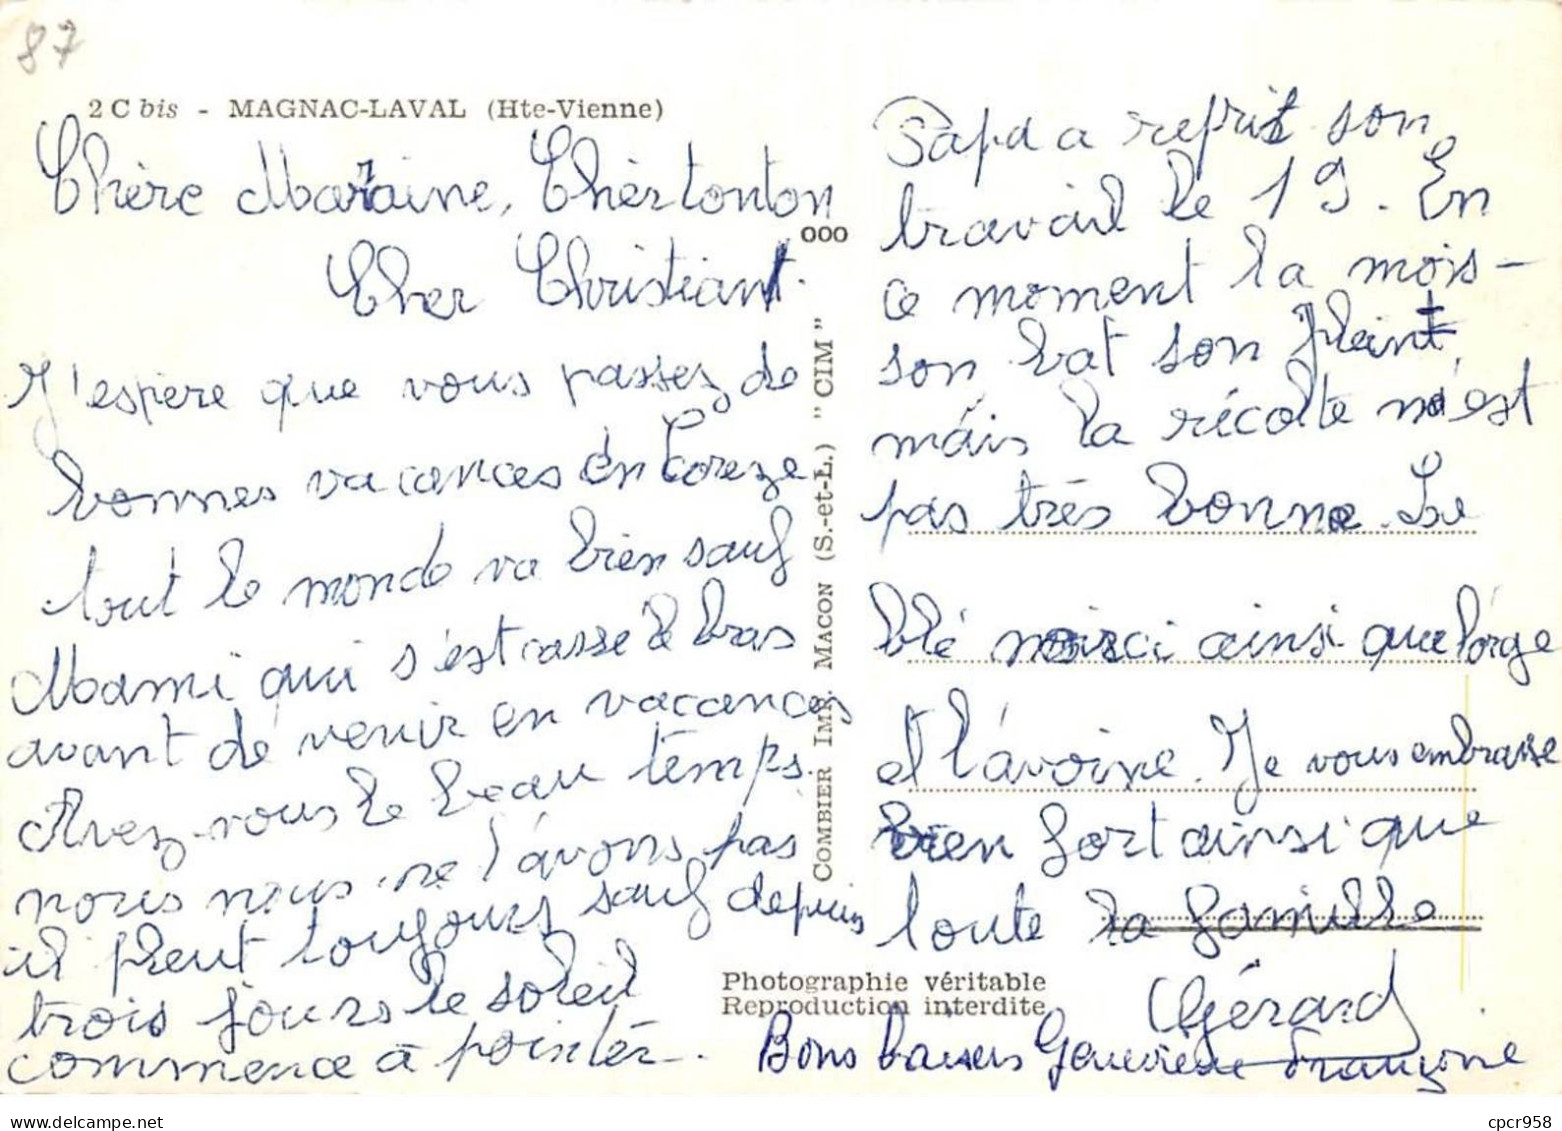 87
2 C bis - MAGNAC-LAVAL (Hte-Vienne)
Chère Marraine, Cher tonton
Cher Christian.
J'espère que vous passez de
bonnes vacances en Coreze
tout le monde va bien sauf
Mami qui s'est cassé le bras
avant de venir en vacances
Avez-vous le beau temps.
nous nous ne l'avons pas
il pleut toujours sauf depuis
trois jours le soleil
commence à pointer.
000
COMBIER IMP. MACON (S.-et-L.) "CIM"
Papa a repris son
travail le 19. En
ce moment la mois-
son bat son plein,
mais la récolte n'est
pas très bonne. Le
blé noirci ainsi que l'orge
et l'avoine. Je vous embrasse
bien fort ainsi que
toute la famille
Gérard
Photographie véritable
Reproduction interdite
Bons baisers Geneviève Françoise
cpcr958